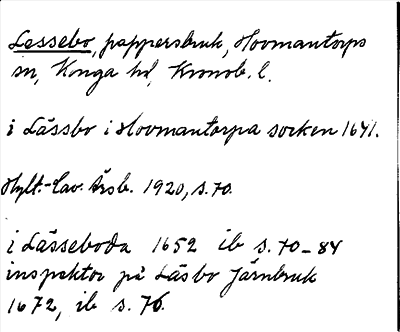 Lessebo, pappersbruk, Hovmantorps
sn, Konga hd, Kronob. l.
i Låssbo i Hovmantorpa socken 1641.
Hylt.-Cav. Årsb. 1920, s. 70.
i Låsseboda 1652 ib s. 70-84
inspektor på Låsbo Järnbruk
1672, ib s. 76.